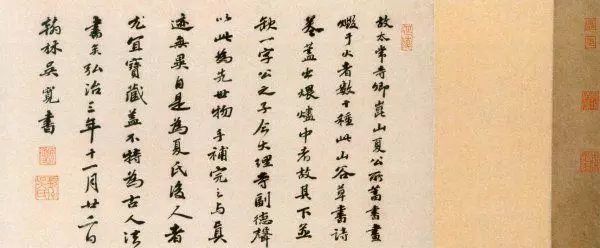 故太常寺卿崑山夏公所蓄書畫
燬于火者數十種此山谷草書詩
卷蓋出煨燼中者故其下並
缺一字公之子今大理寺副德聲
以此為先世物手補完之与真
迹無異自是為夏氏後人者
尤宜寶藏蓋不特為古人法
書矣弘治三年十一月廿二日
翰林吳寬書